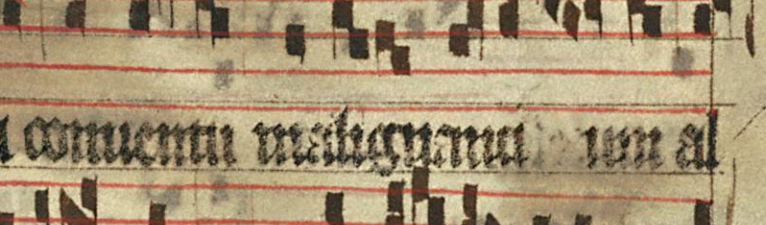 conuentu malignantium al